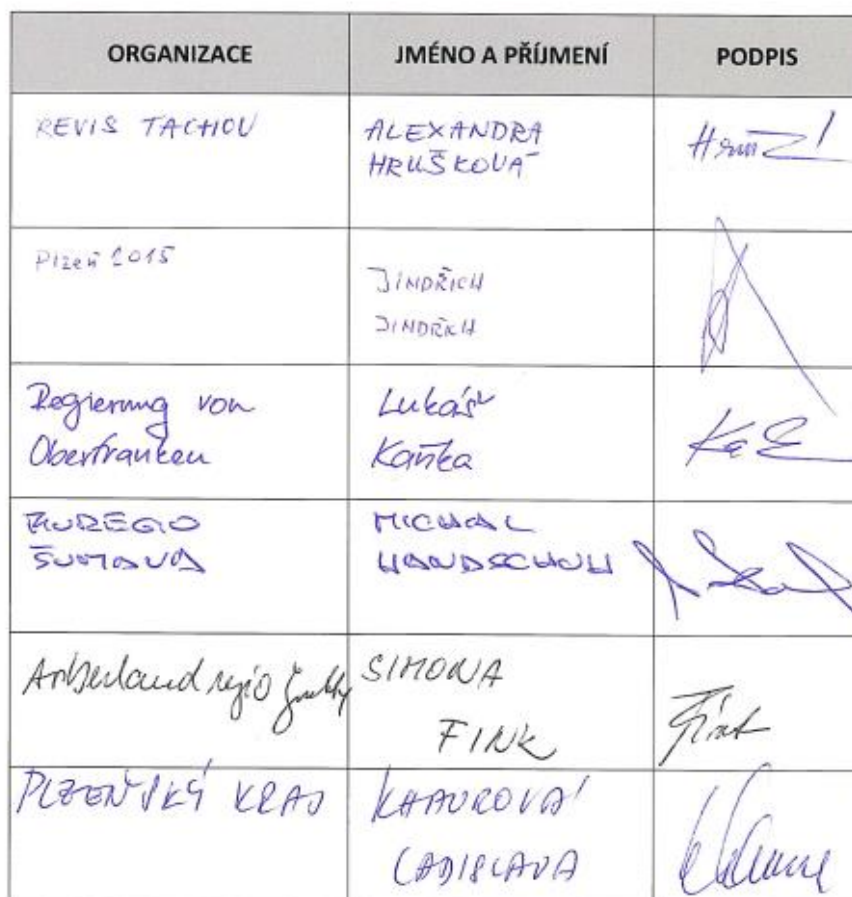 ORGANIZACE JMÉNO A PŘÍJMENÍ PODPIS
REVIS TACHOV ALEXANDRA
HRUŠKOVÁ
Plzeň 2015
JINDŘICH
JINDŘICH
Regierung von Lukáš
Oberfranken Kaňka
EUREGIO MICHAL
ŠUMAVA HANDSCHUH
Arberland regio GmbH SIMONA
FINK
PLZEŇSKÝ KRAJ
LADISLAVA